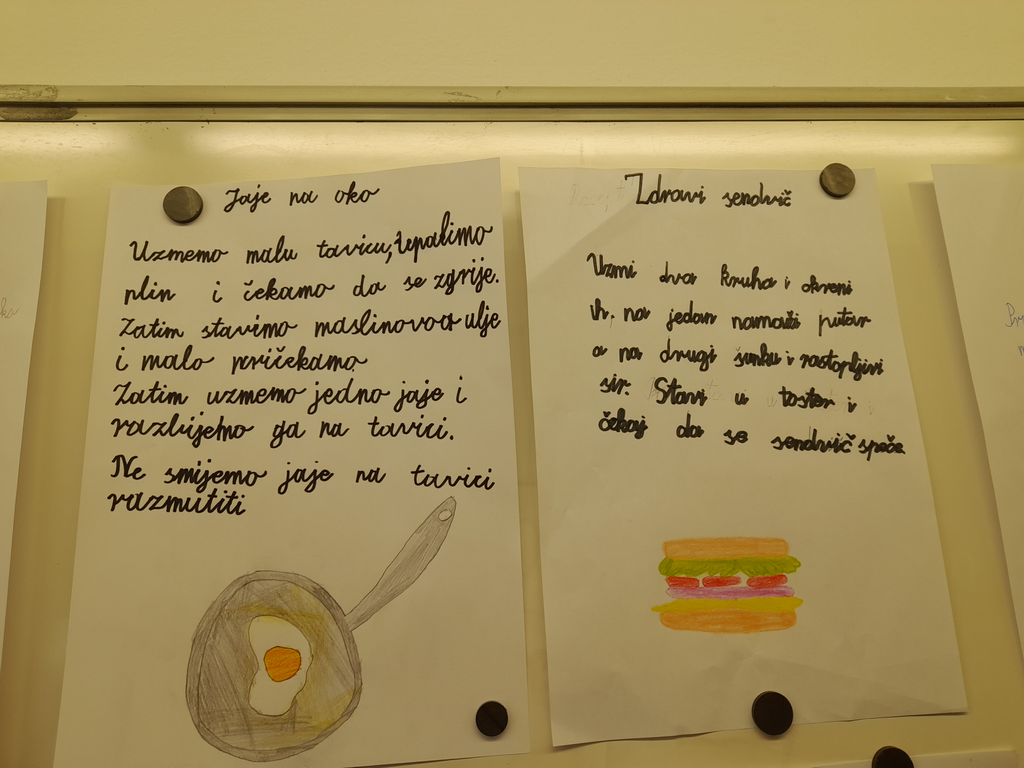 Jaje na oko
Uzmemo malu tavicu, upalimo
plin i čekamo da se zgrije.
Zatim stavimo maslinovo ulje
i malo pričekamo.
Zatim uzmemo jedno jaje i
razbijemo ga na tavici.
Ne smijemo jaje na tavici
razmutiti
Zdravi sendvič
Uzmi dva kruha i okreni
ih. na jedan namaži putar
a na drugi šunku i rastopljivi
sir. Stavi u toster i
čekaj da se sendvič speče